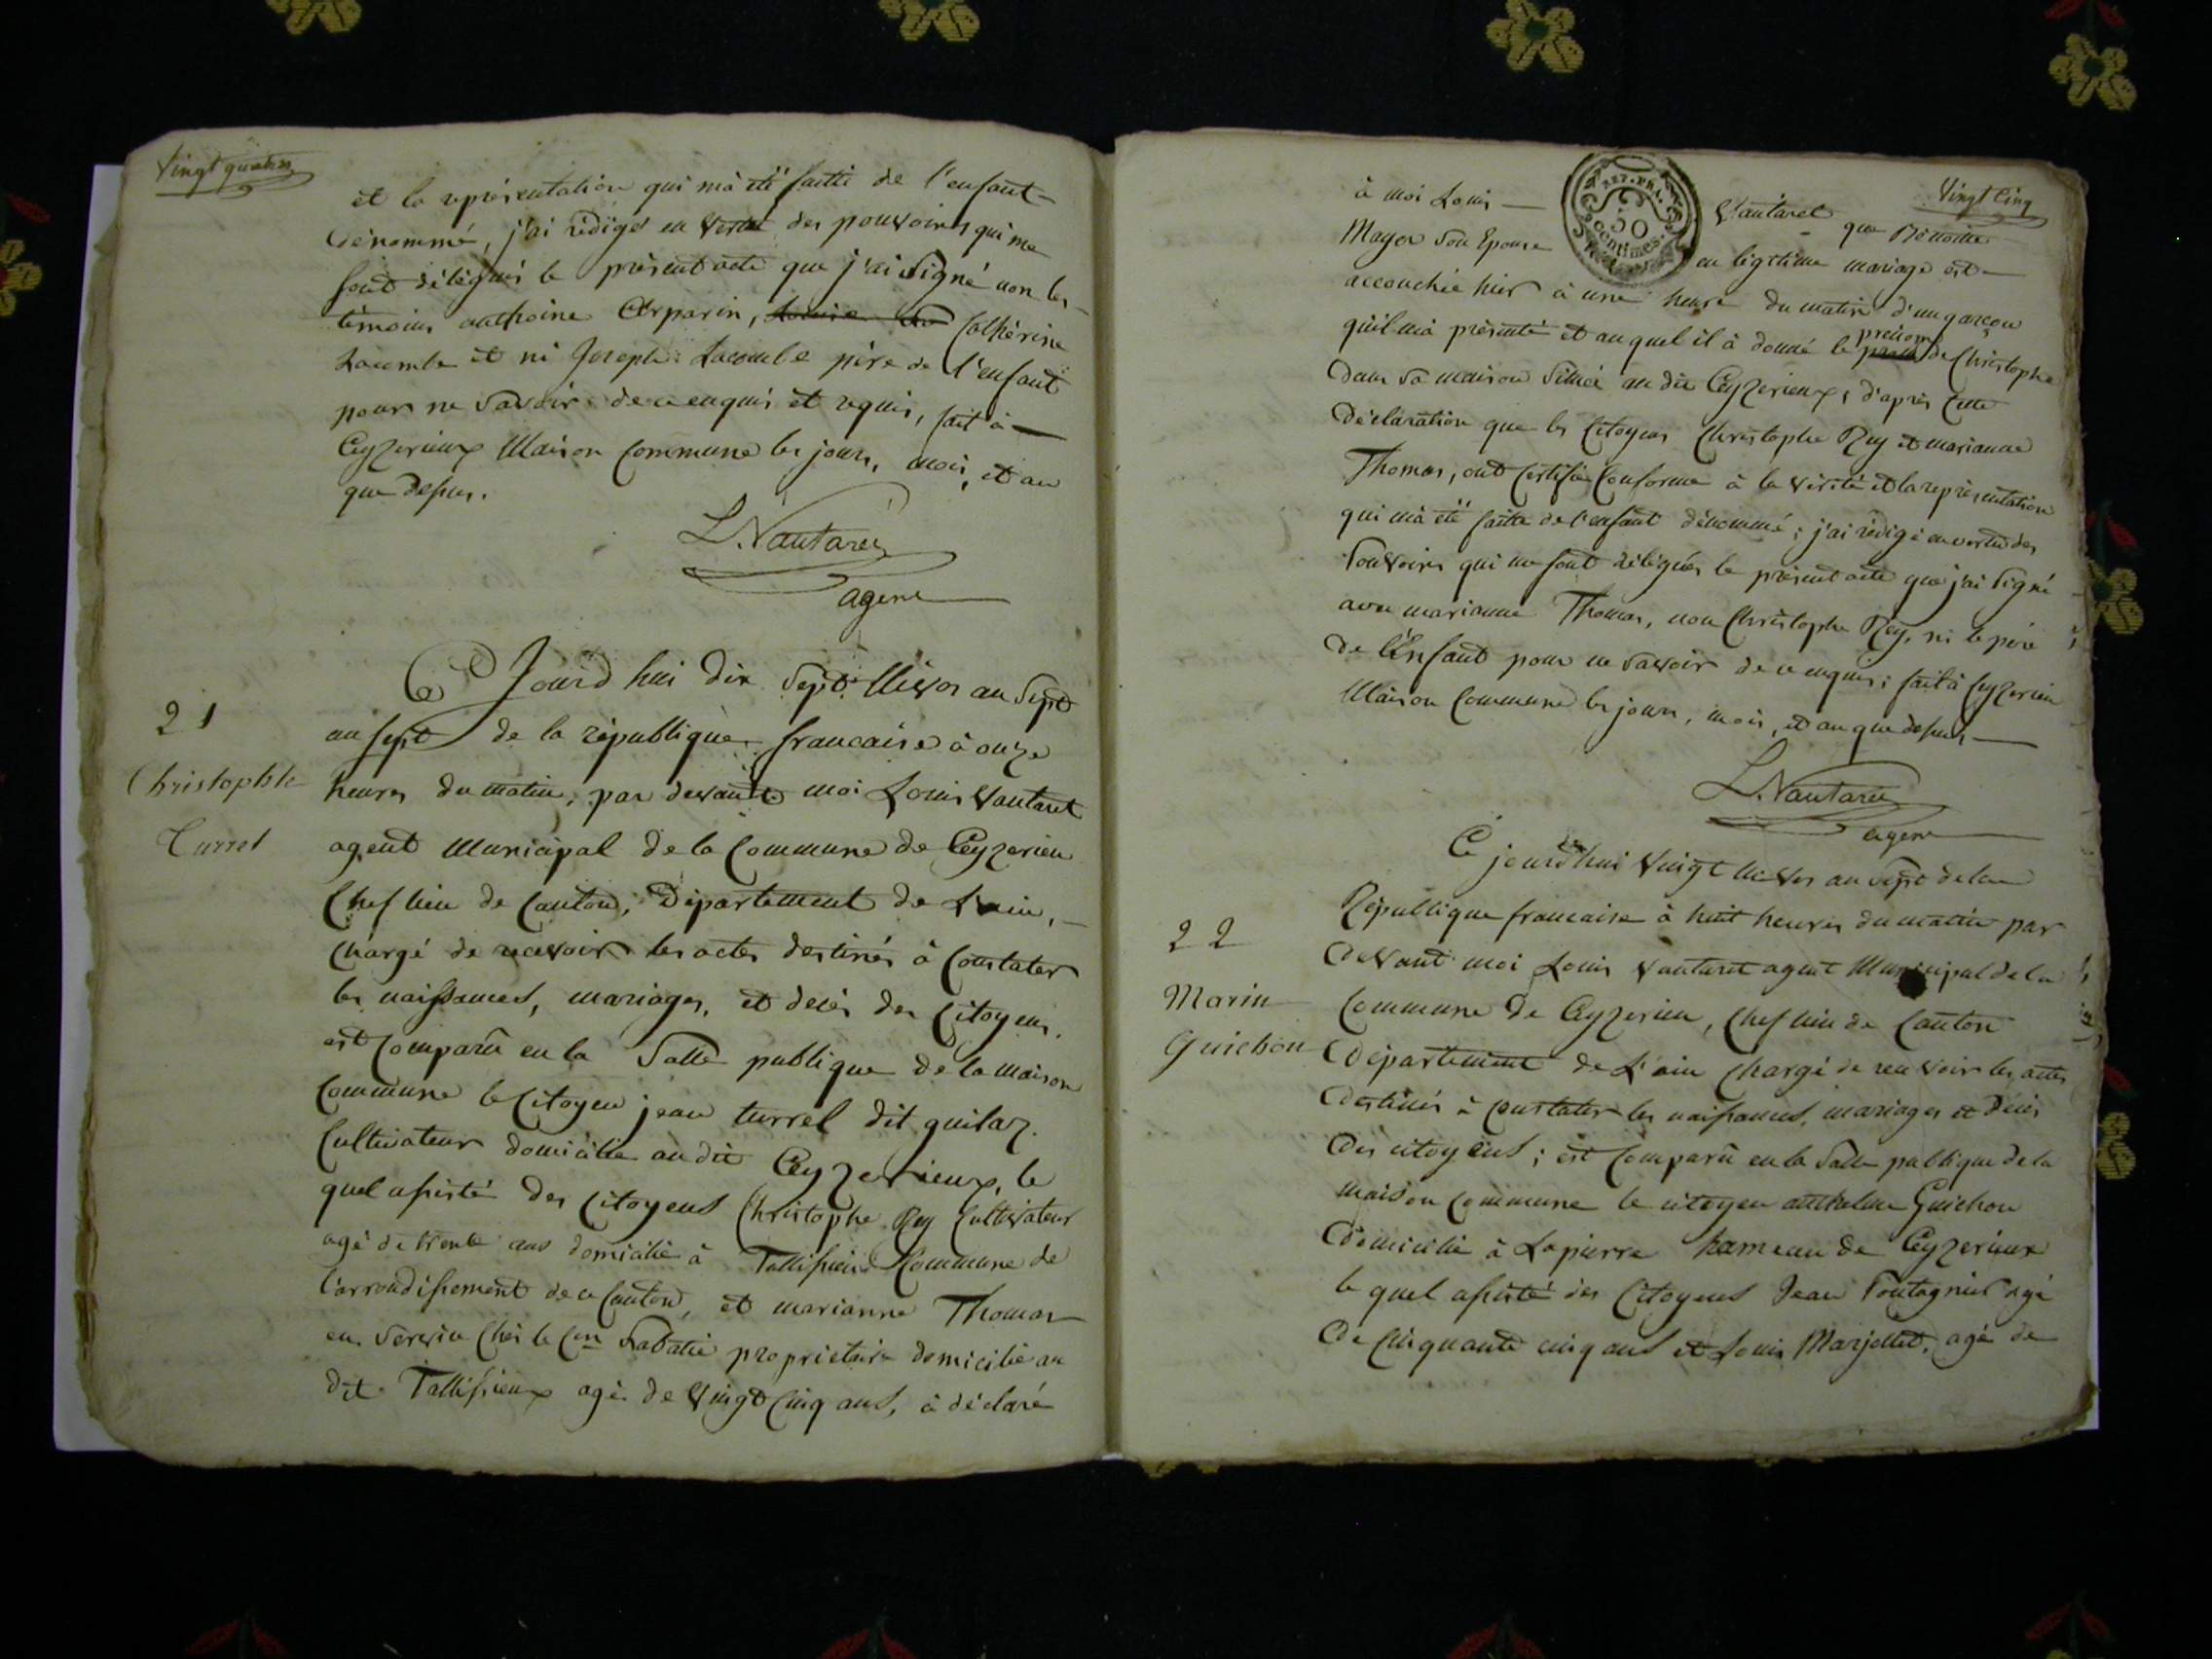 Vingt quatre
et la représentation qui m'à été faitte de l'enfant
dénommé, j'ai rédigé en vertu des pouvoirs qui me
sont délégués le présent acte que j'ai signé non les
témoins anthoine Carparin, Cathérine
Lacombe et ni Joseph Lacombe père de l'enfant
pour ne savoir de ce enquis et requis, fait à
Ceyzerieux Maison Commune les jours, mois, et an
que dessus.
L. Vautaret
agent
21
Christophle
Turrel
Ce Jourd'hui dix Sept Nivos an Sept
an sept de la république francaise à onze
heures du matin, par devant moi Louis Vautaret
agent Municipal de la Commune de Ceyzerieu
Chef lieu de Canton, Département de L'ain,
chargé de recevoir les actes destinés à Constater
les naissances, mariages, et décès des Citoyens.
est Comparû en la Salle publique de la maison
Commune le Citoyen jean turrel dit guilaz.
Cultivateur domicilié au dit Ceyzerieux, le
quel assisté des Citoyens Christophe Rey Cultivateur
agé de trente ans domicilié à Tallissieu Commune de
l'arrondissement de ce Canton, et marianne Thomas
en service Chés le Cen Sabatié proprietaire domicilié au
dit Tallissieux agé de Vingt Cinq ans, à déclaré
Vingt Cinq
à moi Louis Vautaret que Benoite
REP. FRA.
50
centimes.
Mayer son Epouse en légitime mariage est
accouchée hier à une heure du matin d'un garçon
qu'il m'à présenté et au quel il à donné le prénom de Christophe
dans sa maison située au dit Ceyzerieux, d'après cette
déclaration que les Citoyens Christophe Rey et marianne
Thomas, ont Certifié Conforme à la vérité et la représentation
qui m'à été faitte de l'enfant dénommé ; j'ai rédigé en vertu des
Pouvoirs qui me sont délégués le présent acte que j'ai signé
avec marianne Thomas, non Christophe Rey, ni le père
de l'Enfant pour ne savoir de ce enquis ; fait à Ceyzerieu
Maison Commune les jours, mois, et an que dessus
L. Vautaret
agent
22
Marin
Guichon
Ce jourd'hui Vingt nivos an Sept de la
République francaise à huit heures du matin par
devant moi Louis Vautaret agent Municipal de la
Commune de Ceyzerieu, Chef lieu de Canton
Département de L'ain Chargé de recevoir les actes
destinés à Constater les naissances, mariages et décès
des citoyens ; est Comparû en la Salle publique de la
maison Commune le citoyen anthelme Guichon
domicilié à Lapierre hameau de Ceyzerieux
le quel assisté des Citoyens Jean Pontagnier agé
de Cinquante cinq ans et Louis Marjollet, agé de